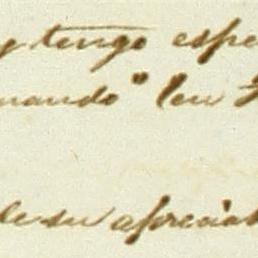 y tengo espe
nando" (en
de su apreciab